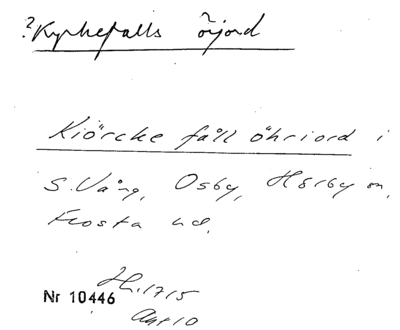 ?Kyrkefalls örjord
Kiörcke fåll öhriord i
S. Vång, Osby, Hörby sn,
Frosta hd.
Nr 10446 Hi. 1715
Akt 10